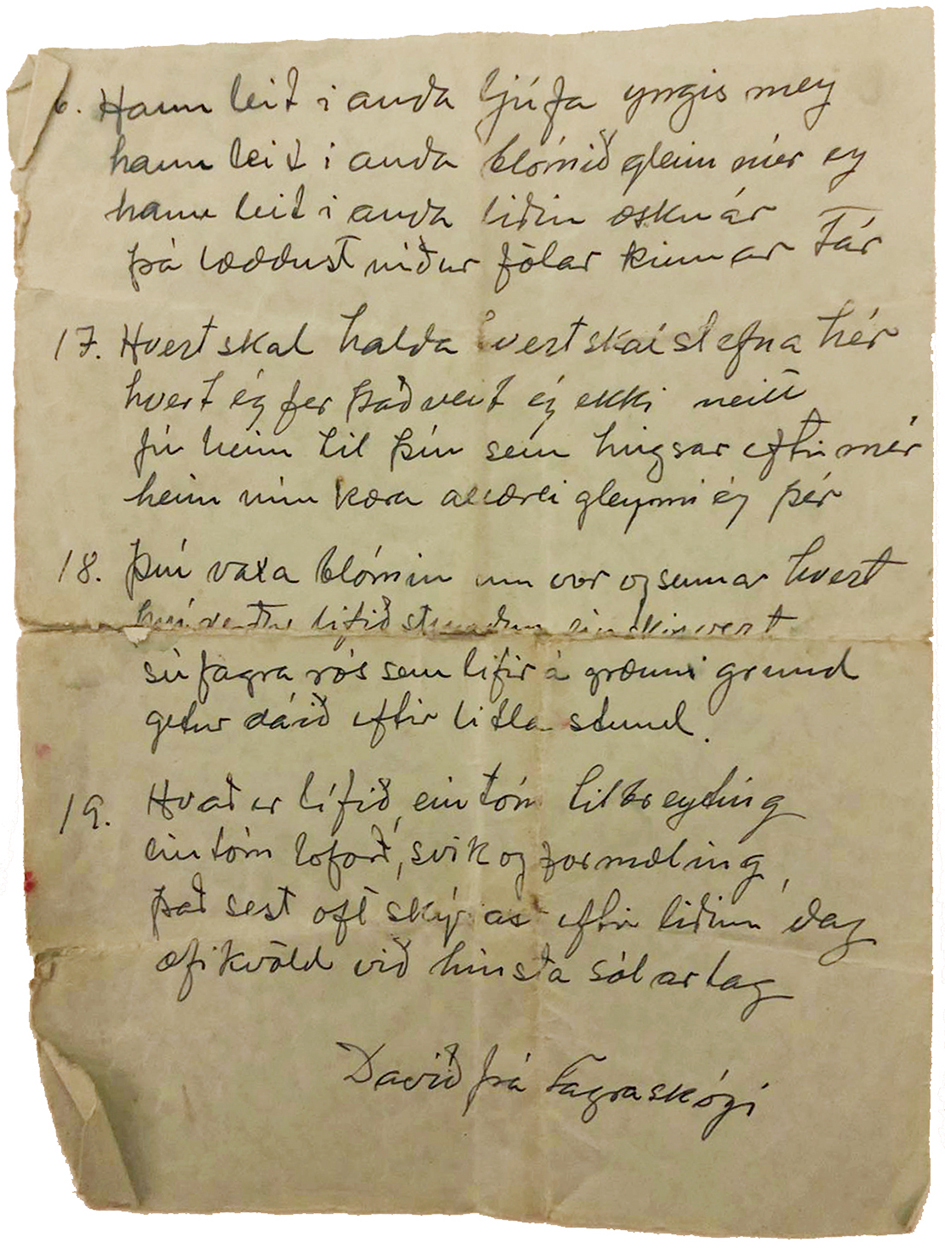 6. Hann leit i anda ljúfa yngis mey
hann leit i anda blómið gleim mér ey
hann leit i anda liðin æsku ár
þá læddust niður fölar kinnar tár
17. Hvert skal halda hvert skal stefna hér
hvert ég fer það veit ég ekki neitt
jú heim til þín sem hugsar eftir mér
heim mín kæra aldrei gleymi ég þér
18. Þín vaxa blómin um vor og sumar hvert
því verður lifið stundum einskisvert
sú fagra rós sem lifir á grænni grund
getur dáið eftir litla stund.
19. Hvað er lífið, eintóm tilbreyting
eintóm loforð, svik og formæling,
það sest oft ský as eftir liðinn dag
æfikvöld við hinsta sólarlag
Davið frá Fagraskógi